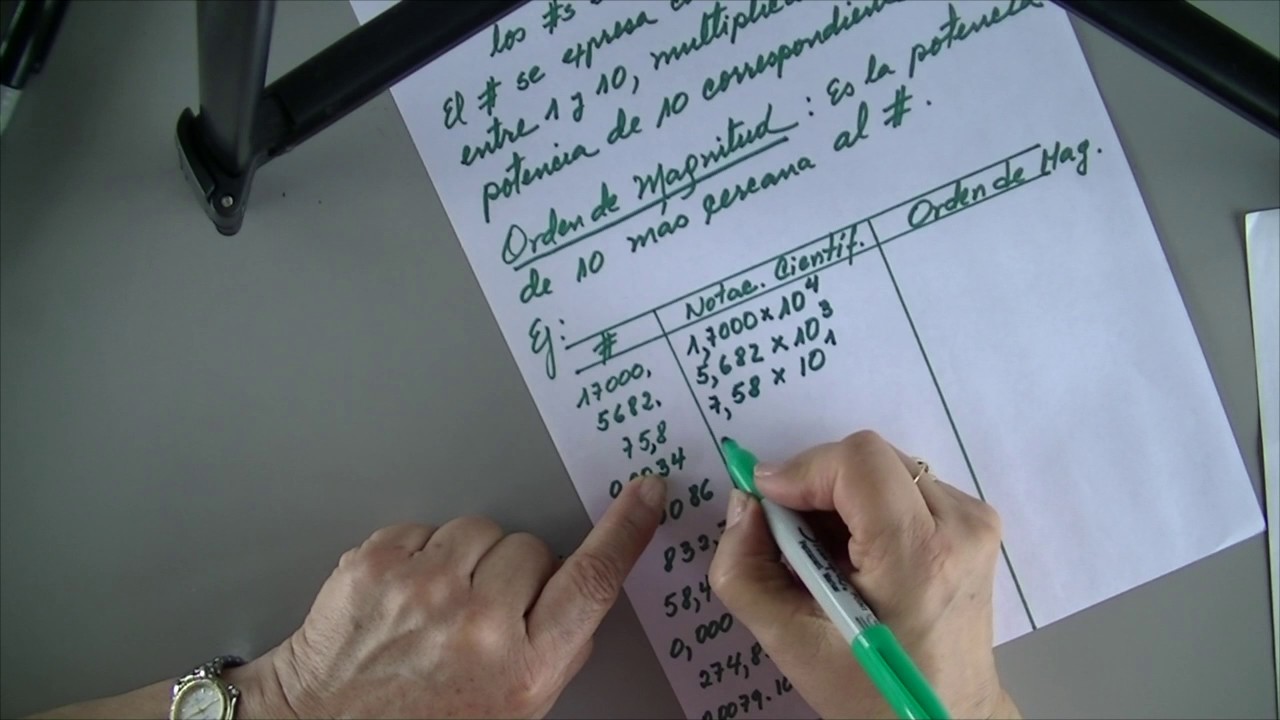 los #s
El # se expresa
entre 1 y 10,
potencia de 10
Orden de Magnitud : Es la potencia
de 10 más cercana al #.
Ej:
# Notac. Científ. Orden de Mag.
17000, 1,7000 x 10⁴
5682. 5,682 x 10³
75,8 7,58 x 10¹
34
086
832,
58,4
0,000
274,8